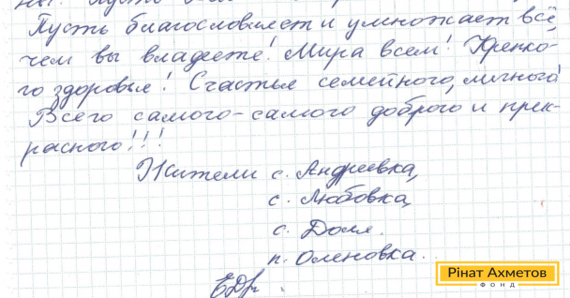 Пусть благословляет и умножает всё,
чем вы владеете! Мира всем! Крепко-
го здоровья! Счастья семейного, личного!
Всего самого-самого доброго и прек-
расного!!!
Жители с. Андреевка,
с. Любовка,
с. Доля.
п. Оленовка.
Рінат Ахметов
ФОНД